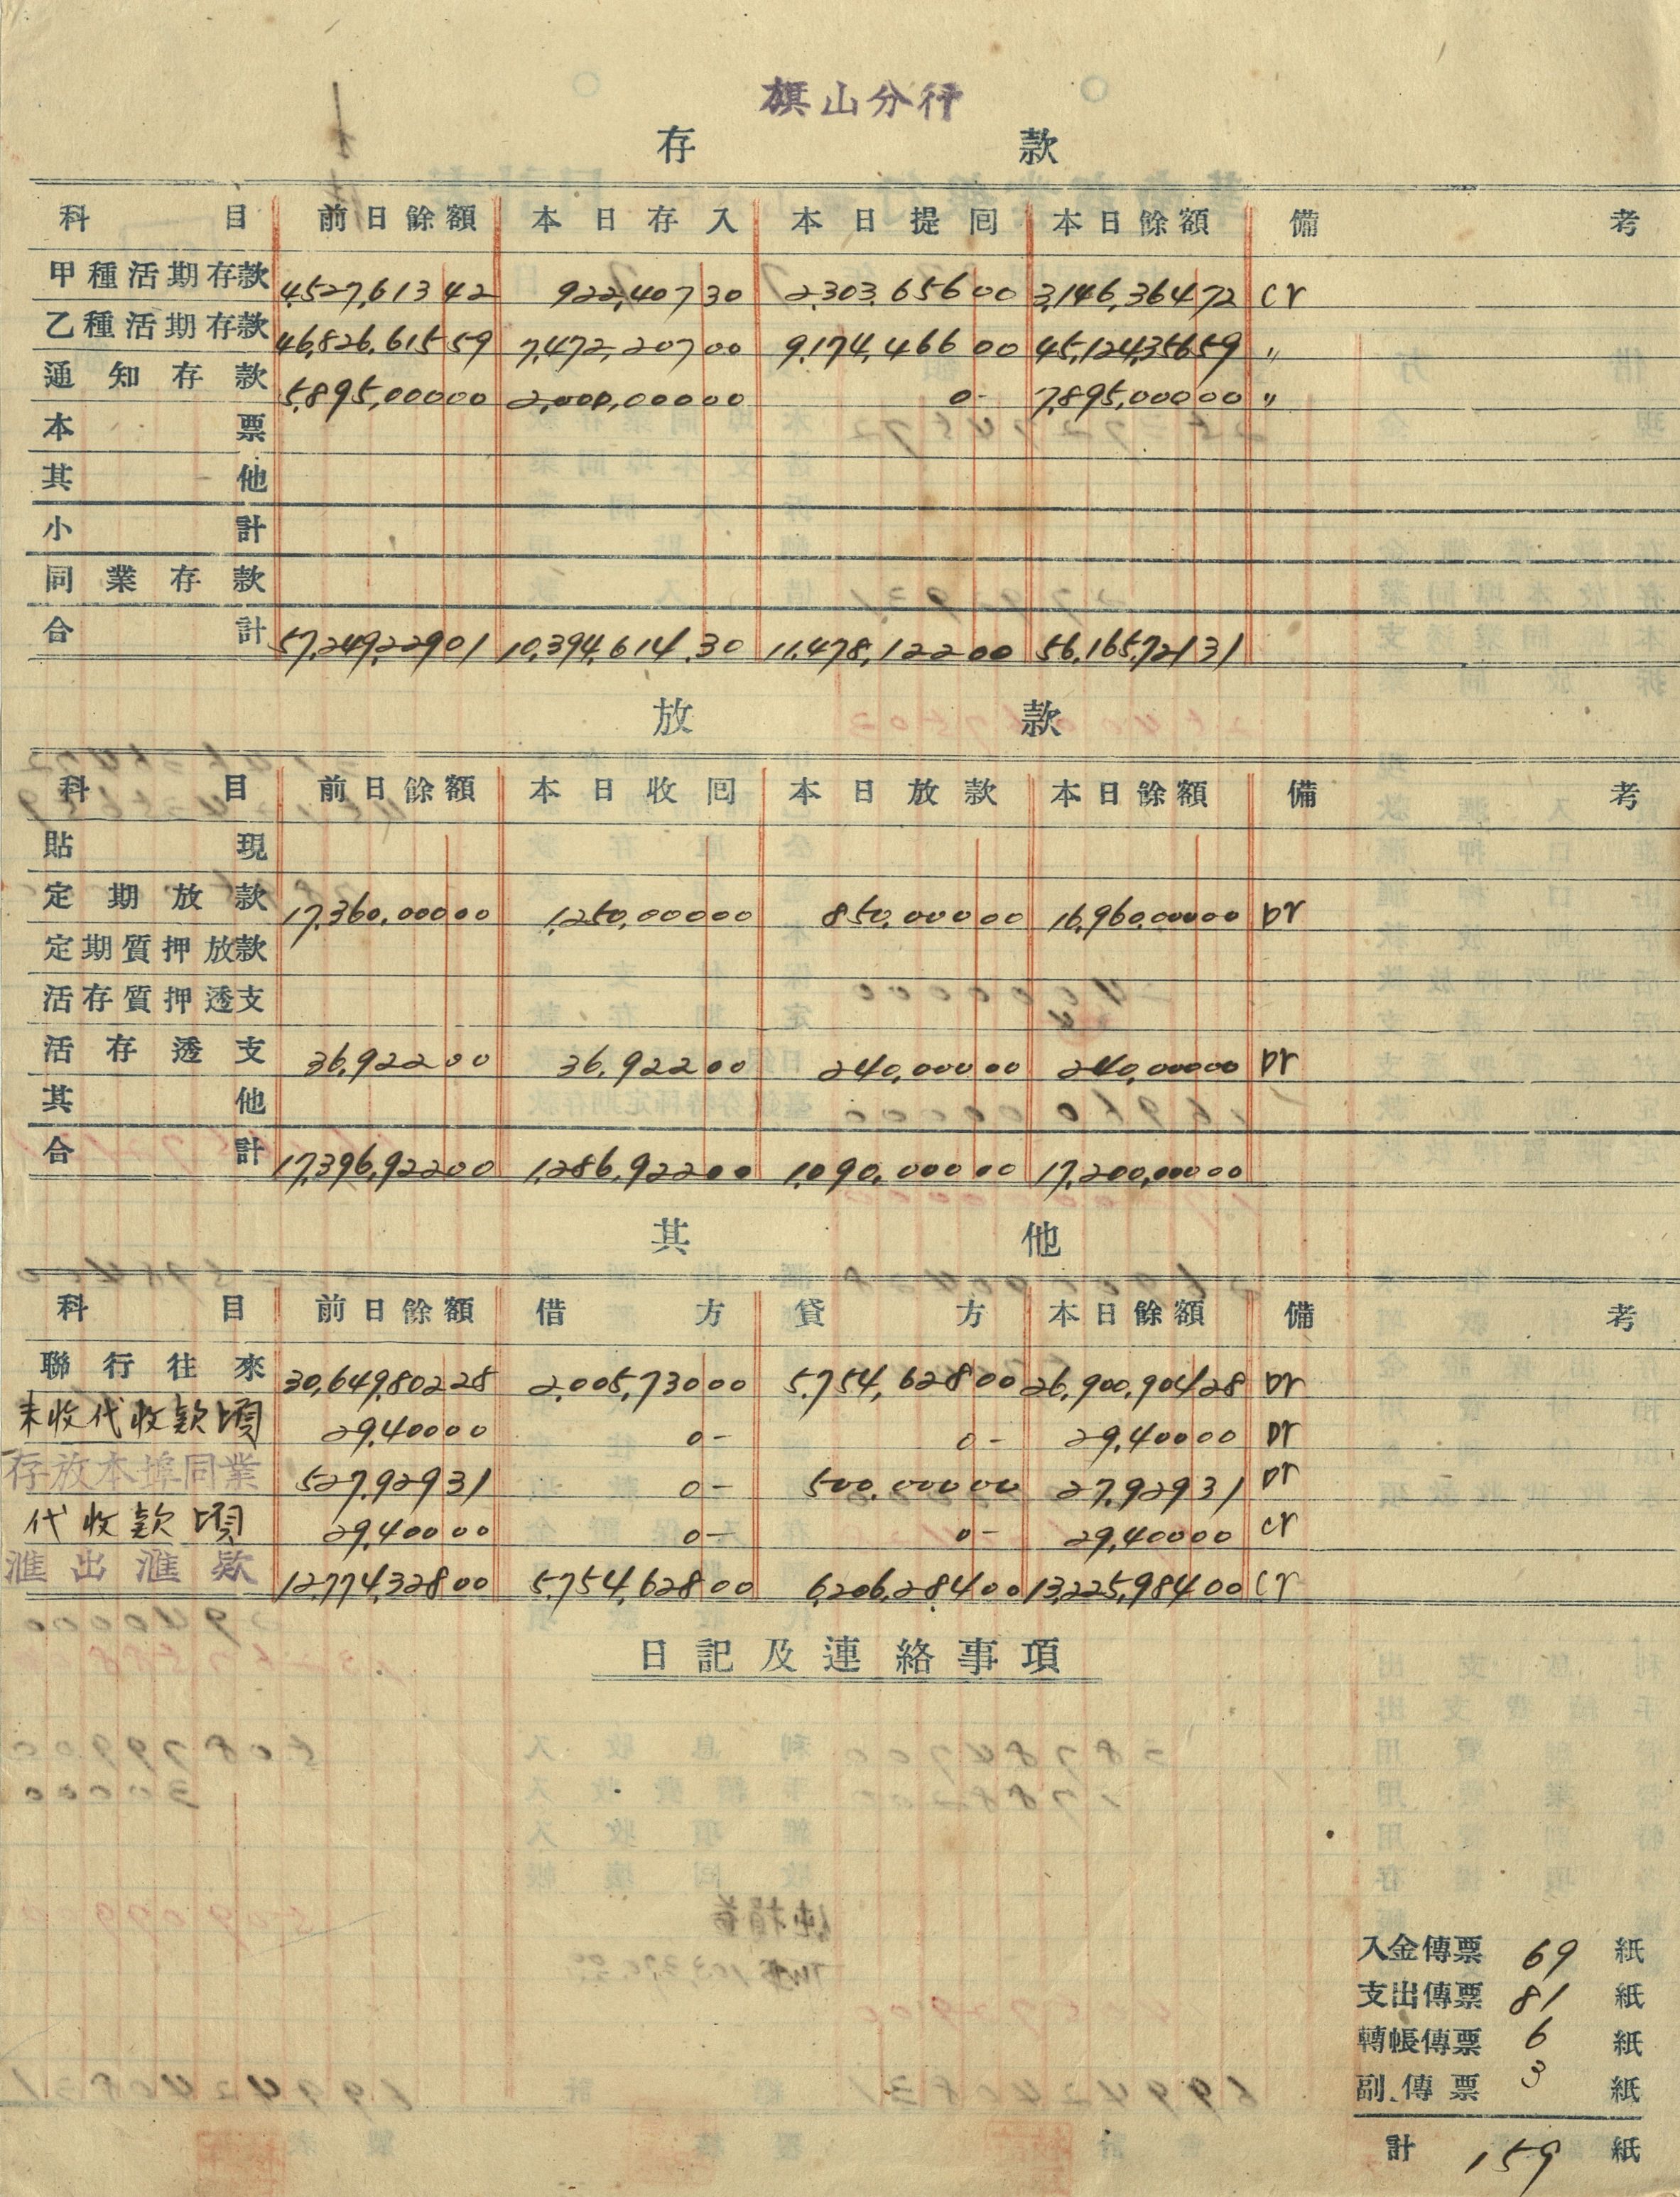 旗山分行
存款
科目 前日餘額 本日存入 本日提囘 本日餘額 備考
甲種活期存款 4,527,613 42 922,407 30 2,303,656 00 3,146,364 72 cr
乙種活期存款 46,826,615 59 7,472,207 00 9,174,466 00 45,124,356 59 〃
通知存款 5,895,000 00 2,000,000 00 0- 7,895,000 00 〃
本票
其他
小計
同業存款
合計 57,249,229 01 10,394,614.30 11,478,122 00 56,165,721 31
放款
科目 前日餘額 本日收囘 本日放款 本日餘額 備考
貼現
定期放款 17,360,000 00 1,250,000 00 850,000 00 16,960,000 00 Dr
定期質押放款
活存質押透支
活存透支 36,922 00 36,922 00 240,000 00 240,000 00 Dr
其他
合計 17,396,922 00 1,286,922 00 1,090,000 00 17,200,000 00
其他
科目 前日餘額 借方 貸方 本日餘額 備考
聯行往來 30,649,802 28 2,005,730 00 5,754,628 00 26,900,904 28 Dr
未收代收款項 29,400 00 0- 0- 29,400 00 Dr
存放本埠同業 527,929 31 0- 500,000 00 27,929 31 Dr
代收款項 29,400 00 0- 0- 29,400 00 cr
滙出滙款 12,774,328 00 5,754,628 00 6,206,284 00 13,225,984 00 cr
日記及連絡事項
入金傳票 69 紙
支出傳票 81 紙
轉帳傳票 6 紙
副傳票 3 紙
計 159 紙